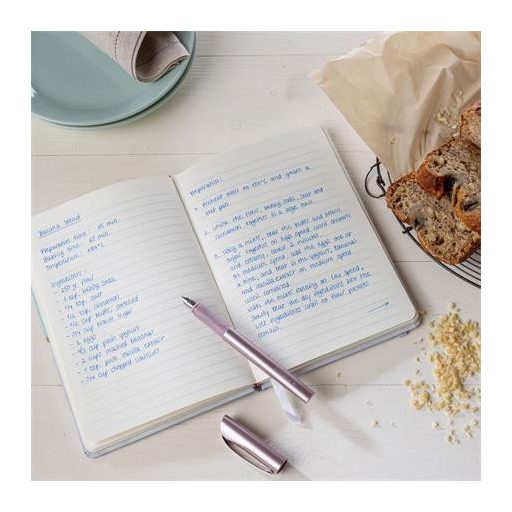 Banana bread
Preparation time: 15 min.
Baking time: 65 min
Temperature: 180°C
Ingredients:
- 250 g flour
- 1 tsp. baking soda
- 1/4 tsp. salt
- 1/2 tsp. cinnamon
- 1/2 cup butter
- 3/4 cup brown sugar
- 2 eggs
- 1/3 cup plain yoghurt
- 2 cups mashed bananas
- 1 tsp. pure vanilla extract
- 3/4 cup chopped walnuts
Preparation:
1. Preheat oven to 180°C and grease a
loaf pan.
2. Whisk the flour, baking soda, salt and
cinnamon together in a large bowl.
3. Using a mixer, beat the butter and brown
sugar together on high speed until smooth
and creamy, about 2 minutes.
on medium speed, add the eggs one at
a time, and beat in the yoghurt, bananas
and vanilla extract on medium speed
until combined.
With the mixer running on low speed,
slowly beat the dry ingredients into the
wet ingredients until no flour pockets
remain.